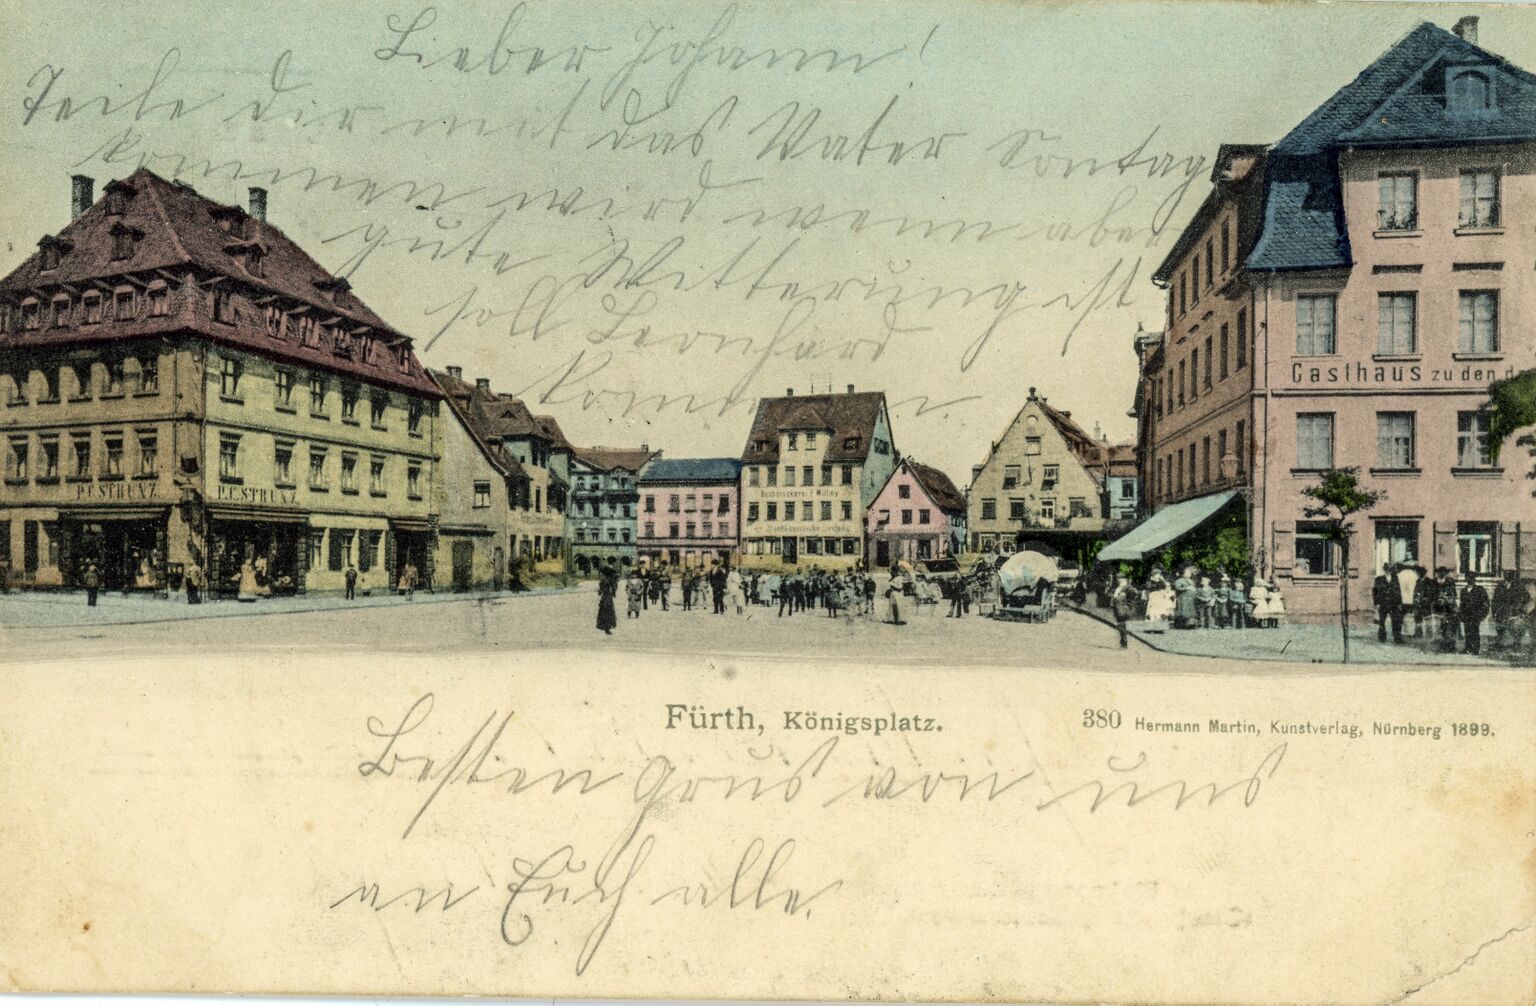 Lieber Johann!
Teile dir mit das Vater Sontag
kommen wird wenn aber
gute Witterung ist
soll Leonhard
kommen.
P.C. STRUNZ
P.C. STRUNZ
Buchdruckerei
Gasthaus zu den
Fürth, Königsplatz.
380 Hermann Martin, Kunstverlag, Nürnberg 1899.
Besten Grus von uns
an Euch alle.